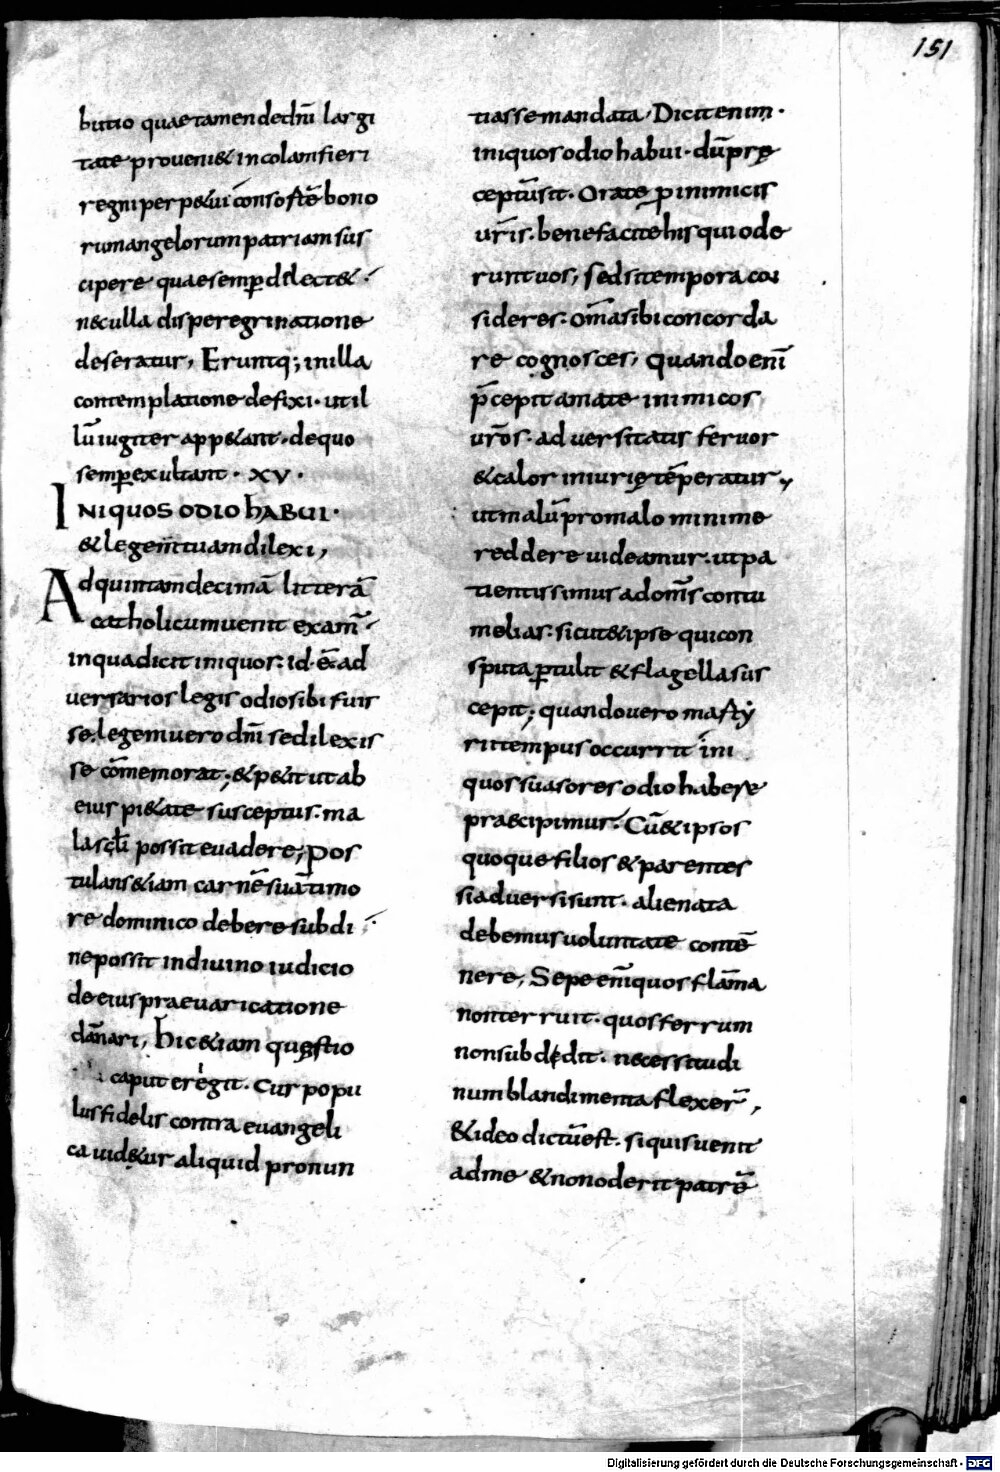 151
butio quae tamen de dn̄i largi
tate proueni& incolam fieri
regni perp&ui c̄onsortē bono
rum angelorum patriam sus
cipere quae semꝑ d&lect&·
nec ulla disperegrinatione
deseratur, Eruntq; in illa
contemplatione defixi· ut il
lū iugiter app&ant· de quo
semꝑ exultant· XV·
INIQUOS ODIO hABUI·
& legem tuam dilexi,
Ad quintam decimā litterā
catholicum uenit exam̄·
in qua dicit iniquos: id· ē· ad
uersarios legis odio sibi fuis
se· legem uero dn̄i se dilexis
se cōmemorat; & p&it ut ab
eius pi&ate susceptus· ma
la scłi possit euadere; Pos
tulans &iam carnē suā timo
re dominico debere subdi·
ne possit in diuino iudicio
de eius praeuaricatione
dānari, hic &iam quęstio
caput eregit· Cur popu
lus fidelis contra euangeli
ca uid&ur aliquid pronun
tiasse mandata· Dicit enim·
iniquos odio habui· dū prę
ceptū sit· Orate ꝓ inimicis
ur̄is· benefacite his qui ode
runt uos, sed si tempora con
sideres· om̄a sibi concorda
re cognosces, quando enī
p̄cepit amate inimicos
ur̄os· aduersitatis feruor
& calor iniurię tēperatur,
ut malū pro malo minime
reddere uideamur· ut pa
tientissimus ad om̄s contu
melias· sicut & ipse qui con
sputa ꝑtulit & flagella sus
cepit; quando uero marty
rii tempus occurrit ini
quos suasores odio habere
praecipimur· Cū & ipsos
quoque filios & parentes
si aduersi sunt· alienata
debemus uoluntate contē
nere, Sepe enī quos flam̄a
non terruit· quos ferrum
non subdedit· necessitudi
num blandimenta flexer̄,
& ideo dictū est· si quis uenit
ad me & non oderit patrē
Digitalisierung gefördert durch die Deutsche Forschungsgemeinschaft - DFG